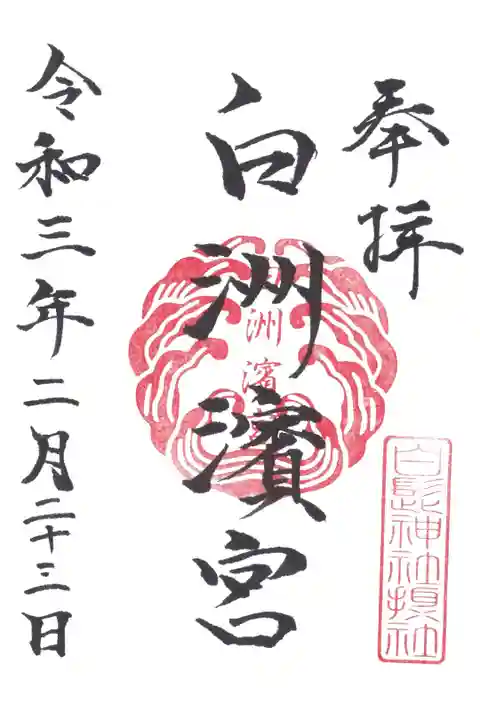 奉拝
白洲濱宮
洲濱
白髭神社摂社
令和三年二月二十三日